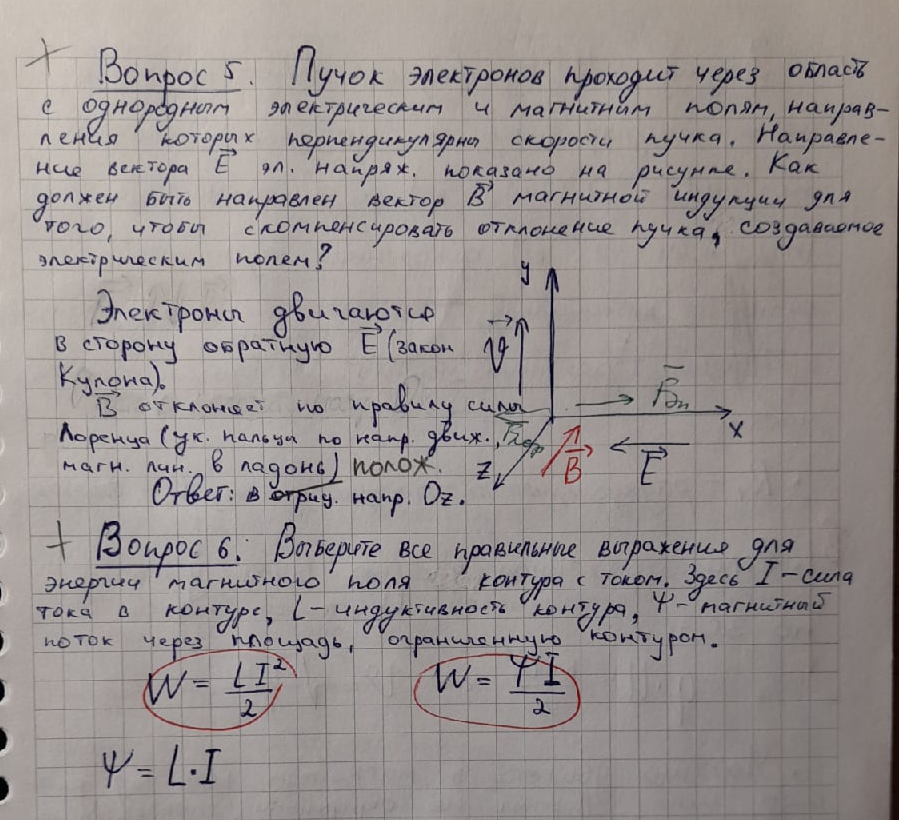 + Вопрос 5. Пучок электронов проходит через область
с однородным электрическим и магнитным полям, направ-
ления которых перпендикулярны скорости пучка. Направле-
ние вектора E эл. напряж. показано на рисунке. Как
должен быть направлен вектор B магнитной индукции для
того, чтобы скомпенсировать отклонение пучка, создаваемое
электрическим полем?
Электроны двигаются
в сторону обратную E (закон
Кулона).
B отклоняет по правилу силы
Лоренца (ук. пальцы по напр. движ.,
магн. лин. в ладонь) полож.
Ответ: в отриц. напр. Oz.
y
V
x
z
B
E
+ Вопрос 6. Выберите все правильные выражения для
энергии магнитного поля контура с током. Здесь I – сила
тока в контуре, L – индуктивность контура, Ψ – магнитный
поток через площадь, ограниченную контуром.
W = LI²/2 W = ΨI/2
Ψ = L·I